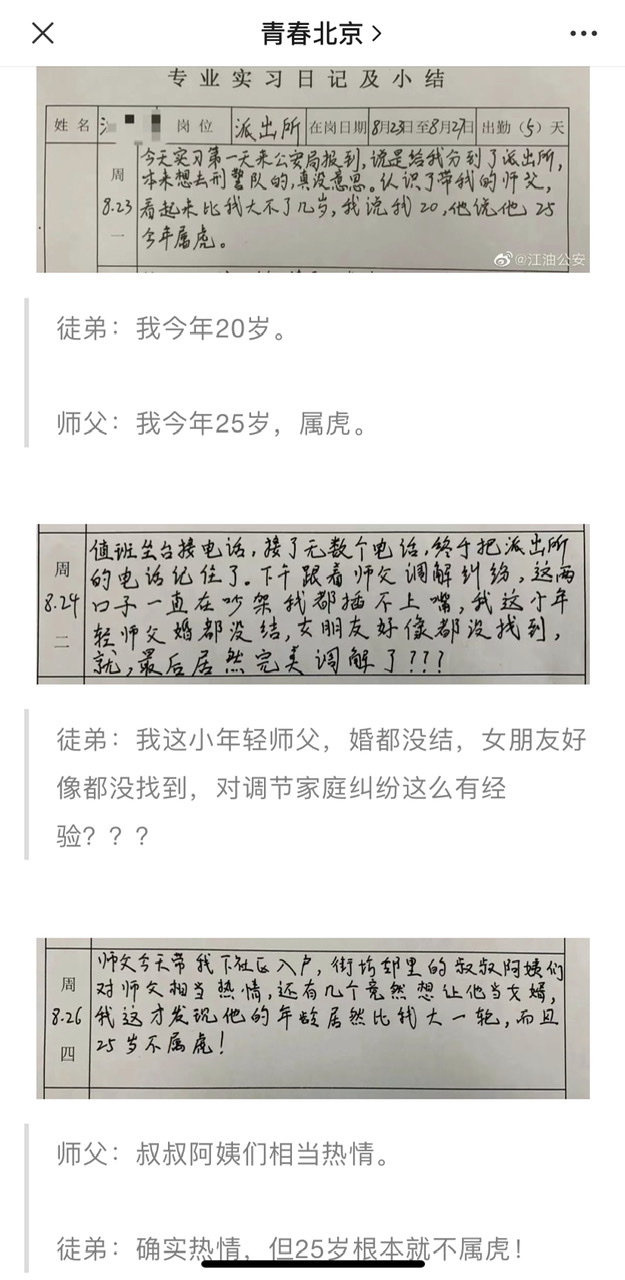 青春北京
专业实习日记及小结
姓名
岗位
派出所
在岗日期
8月23日至8月27日
出勤（5）天
周
8.23
一
今天实习第一天来公安局报到，说是给我分到了派出所，
本来想去刑警队的，真没意思。认识了带我的师父，
看起来比我大不了几岁，我说我20，他说他25
今年属虎。
@江油公安
徒弟：我今年20岁。
师父：我今年25岁，属虎。
周
8.24
二
值班坐台接电话，接了无数个电话，终于把派出所
的电话记住了。下午跟着师父调解纠纷，这两
口子一直在吵架我都插不上嘴，我这小年
轻师父婚都没结，女朋友好像都没找到，
就，最后居然完美调解了？？？
徒弟：我这小年轻师父，婚都没结，女朋友好
像都没找到，对调节家庭纠纷这么有经
验？？？
周
8.26
四
师父今天带我下社区入户，街坊邻里的叔叔阿姨们
对师父相当热情，还有几个竟然想让他当女婿，
我这才发现他的年龄居然比我大一轮，而且
25岁不属虎！
师父：叔叔阿姨们相当热情。
徒弟：确实热情，但25岁根本就不属虎！